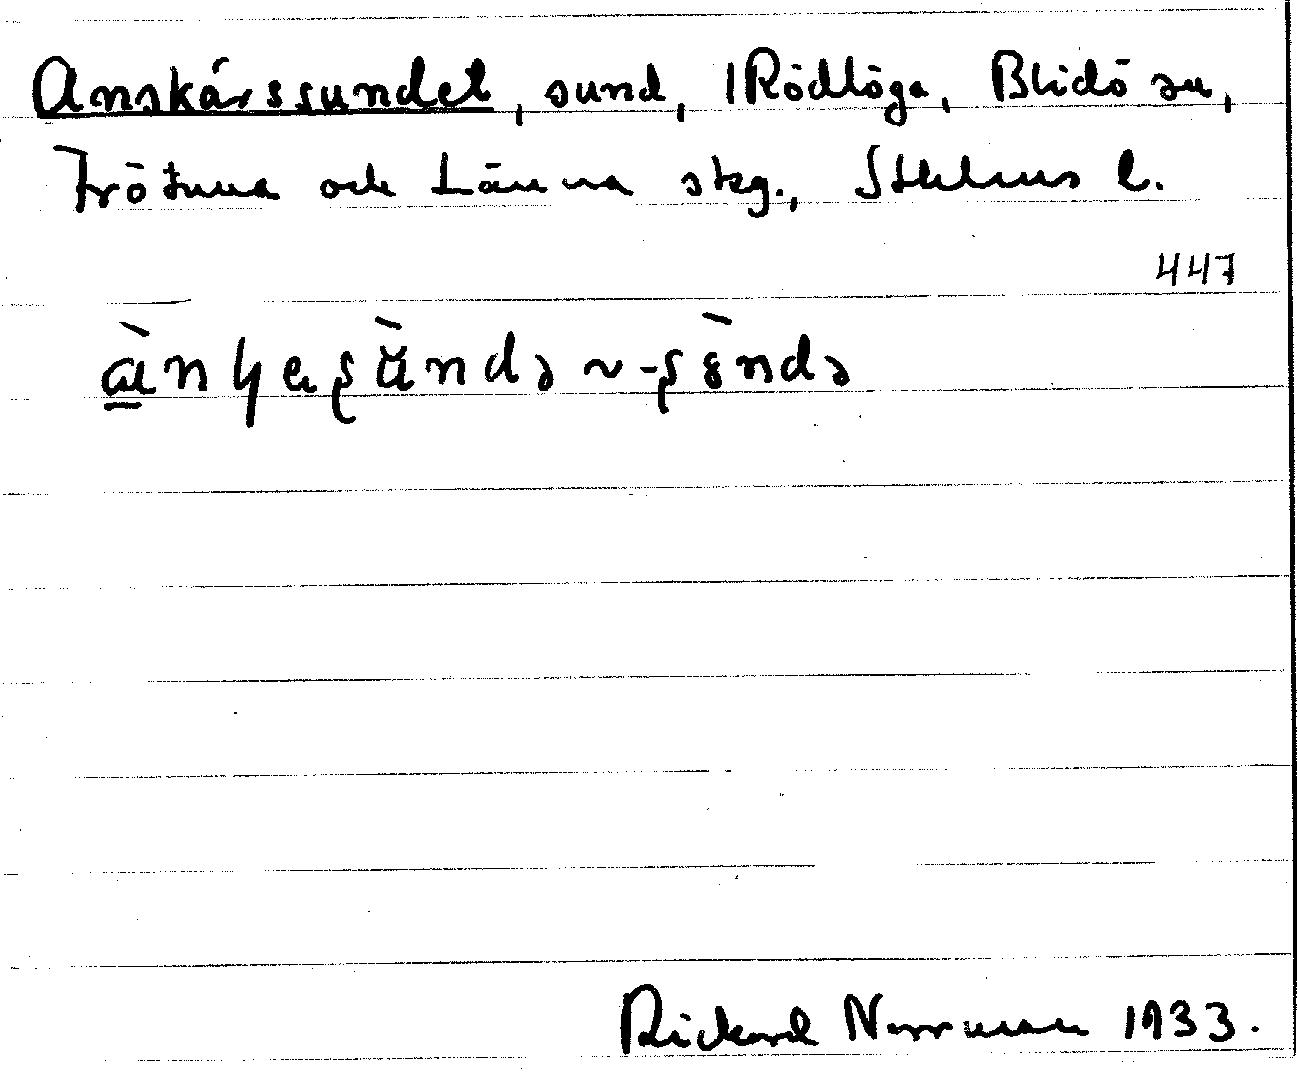 Anskärssundet, sund, 1 Rödlöga, Blidö sn,
Frötuna och Länna skg., Sthlms l.
447
Rickard Norrman 1933.